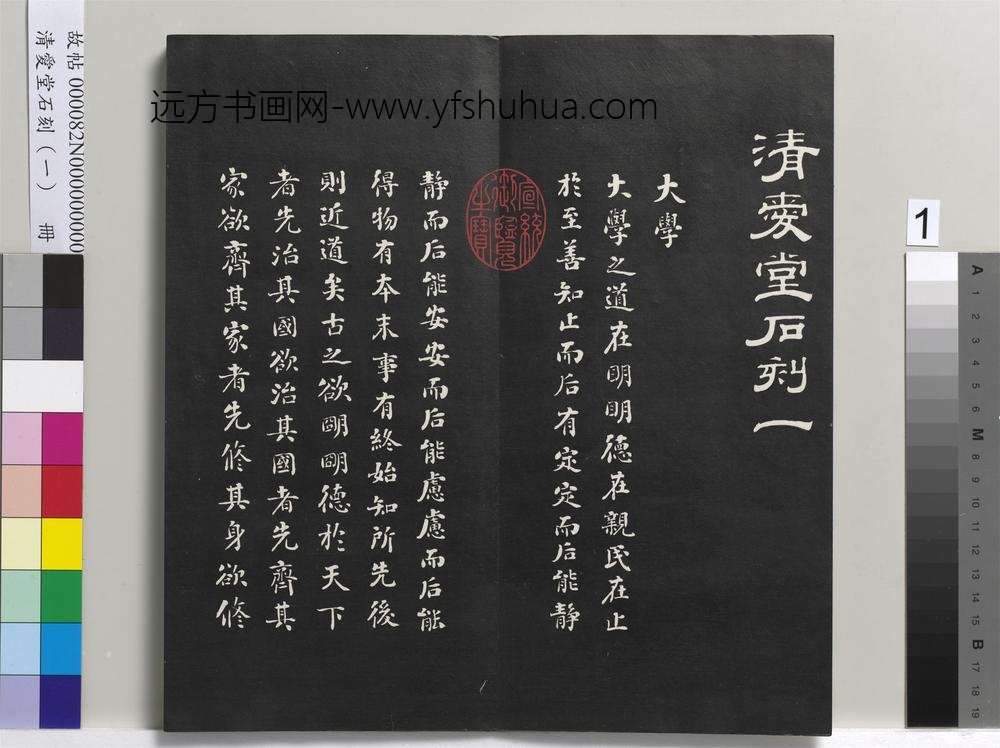 清愛堂石刻一
大學
大學之道在明明德在親民在止
於至善知止而后有定定而后能静
静而后能安安而后能慮慮而后能
得物有本末事有終始知所先後
則近道矣古之欲明明德於天下
者先治其國欲治其國者先齊其
家欲齊其家者先修其身欲修
宣統御覽之寶
远方书画网-www.yfshuhua.com
故帖 000082N000000000
清愛堂石刻（一） 冊
1
A
1
2
3
4
5
6
M
8
9
10
11
12
13
14
15
B
17
18
19